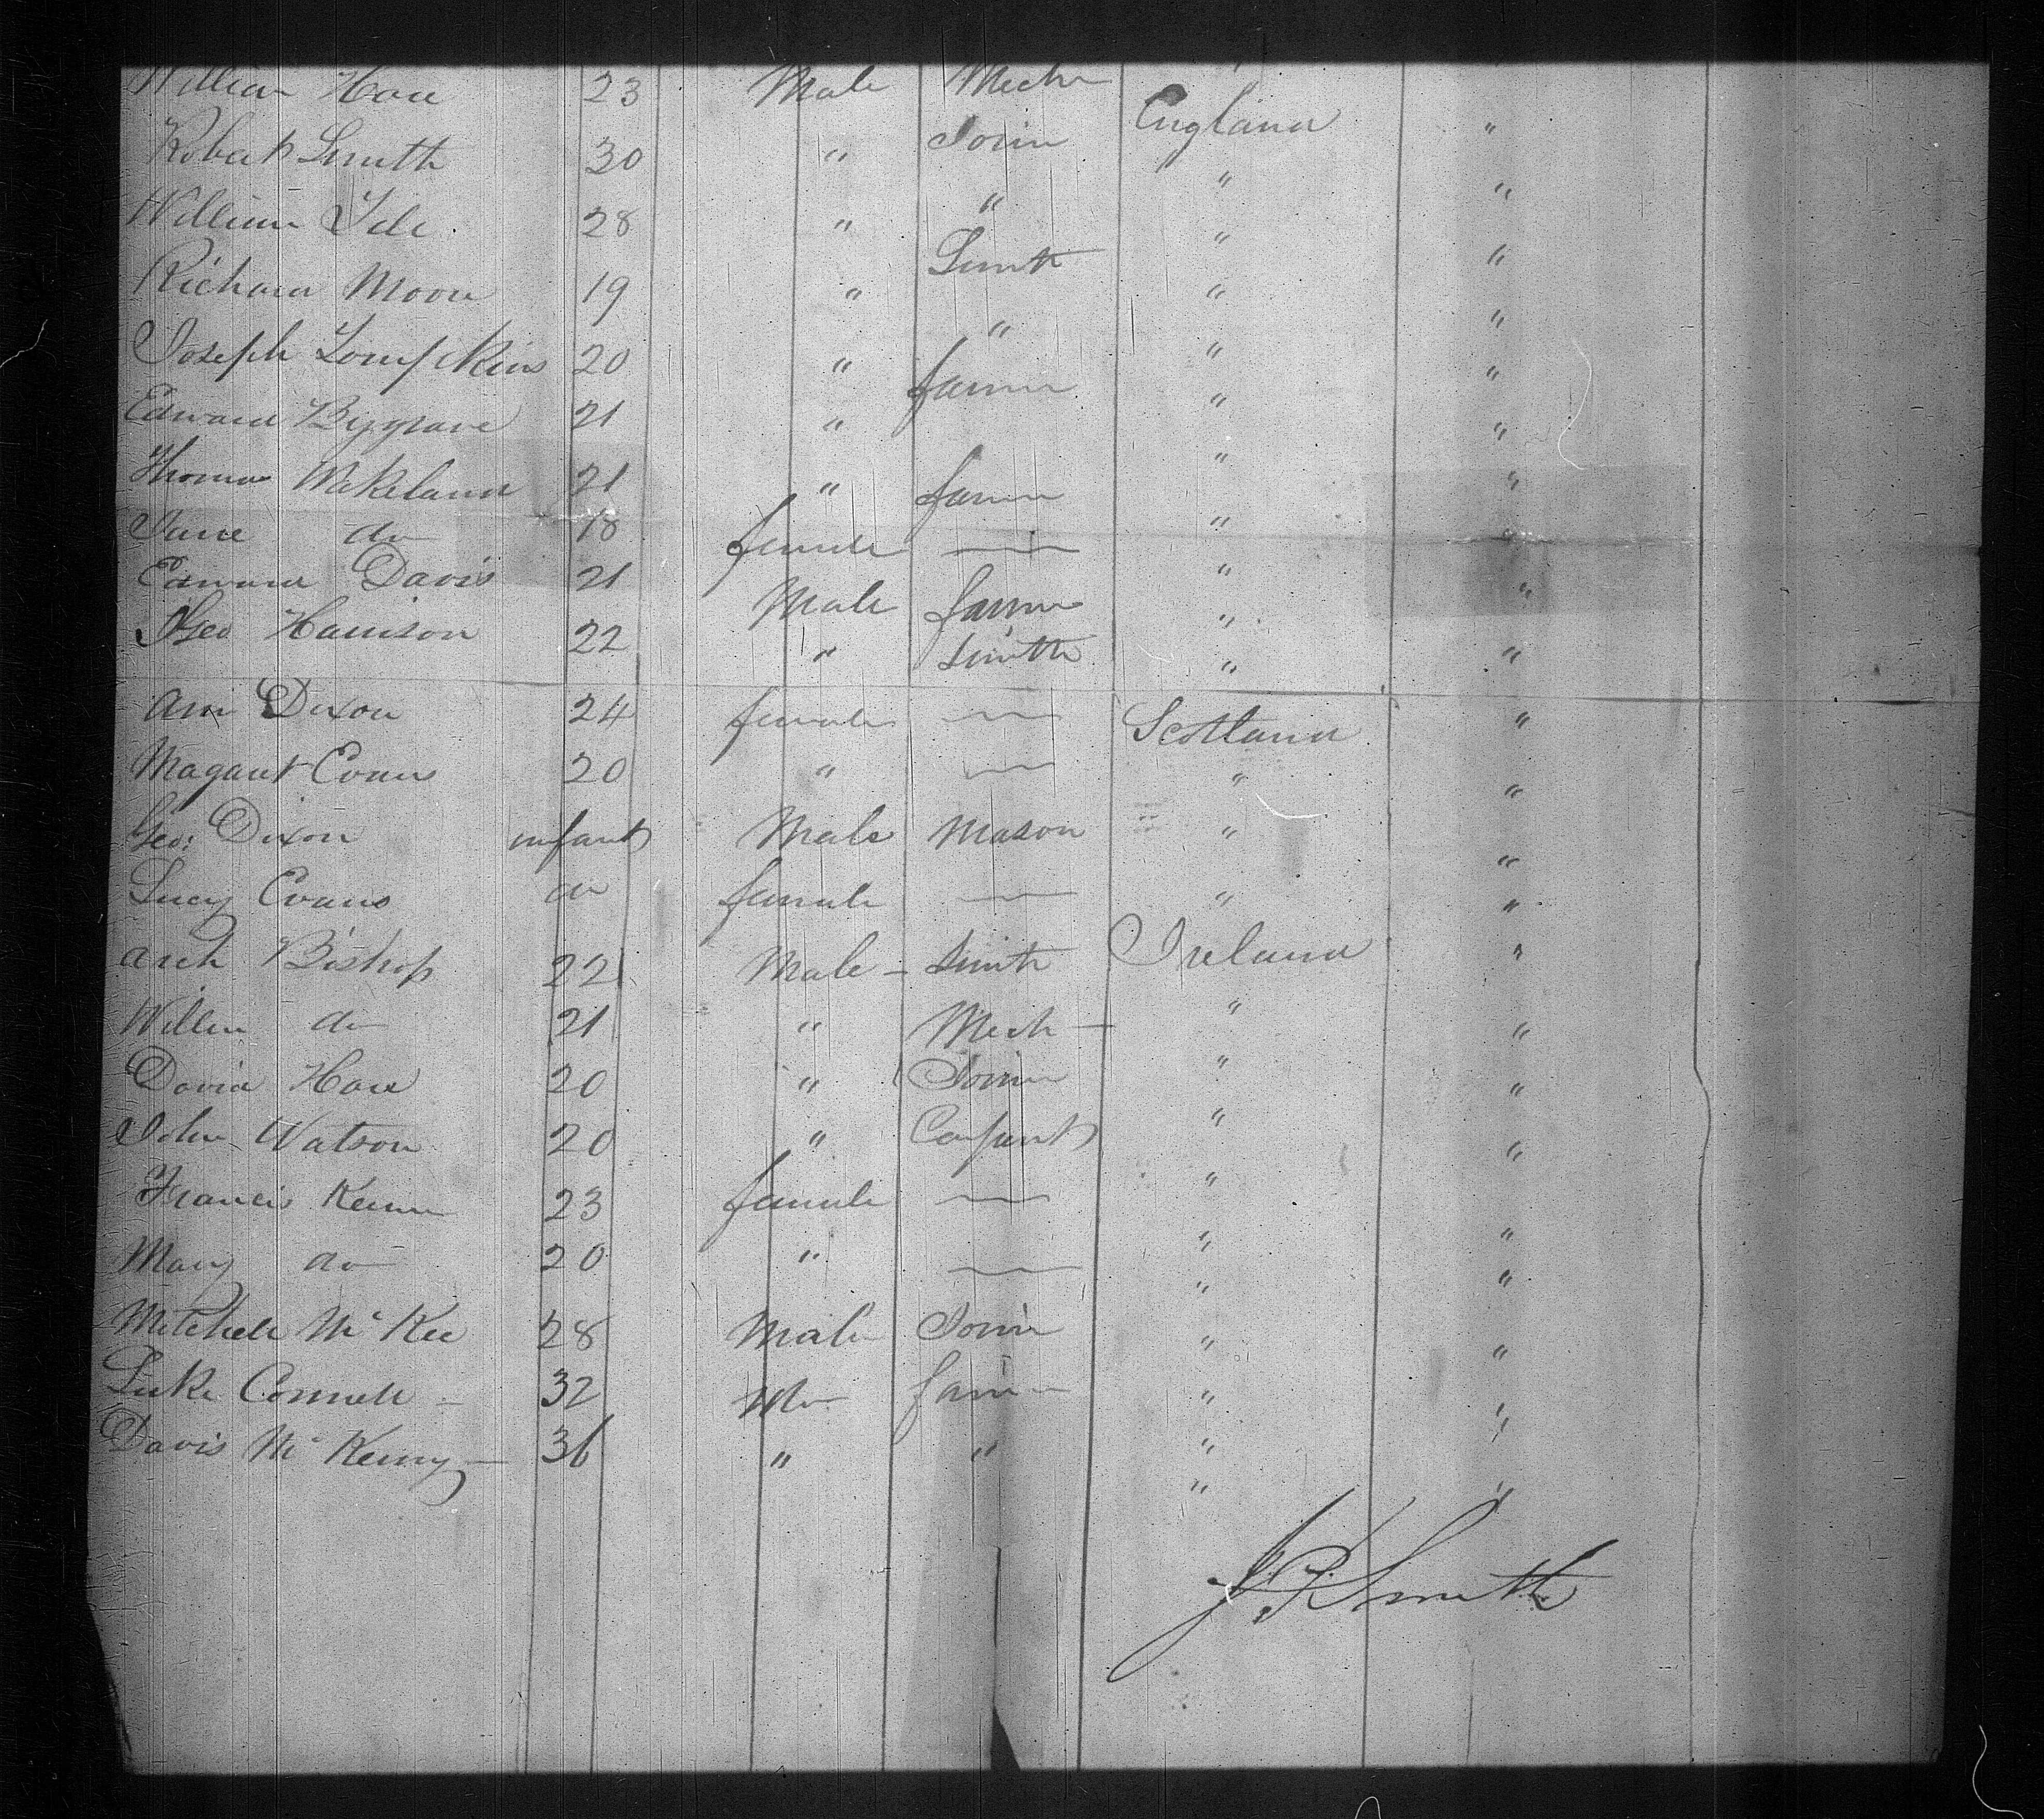 William Hare 23 Male Mech England "
Robert Smith 30 " Join " "
William Tile 28 " " " "
Richard Moon 19 " Smith " "
Joseph Tompkins 20 " " " "
Edward Bygrave 21 " farmer " "
Thomas Wakeland 21 " farmer " "
Jane do 18 female — " "
Edward Davis 21 Male farmer " "
Geo Harrison 22 " Smith " "
Ann Dixon 24 female — Scotland "
Magaret Evans 20 " — " "
Geo: Dixon infant Male Mason " "
Lucy Evans do female — " "
Arch Bishop 22 Male - Smith Ireland "
Willm do 21 " Mech " "
David Hare 20 " Join " "
John Watson 20 " Carpent " "
Francis 23 female — " "
Mary do 20 " — " "
Mitchell McKee 28 Male Join " "
Luke Connell - 32 farmer " "
Davis McKenny - 36 " " " "
" "
J. R Smith